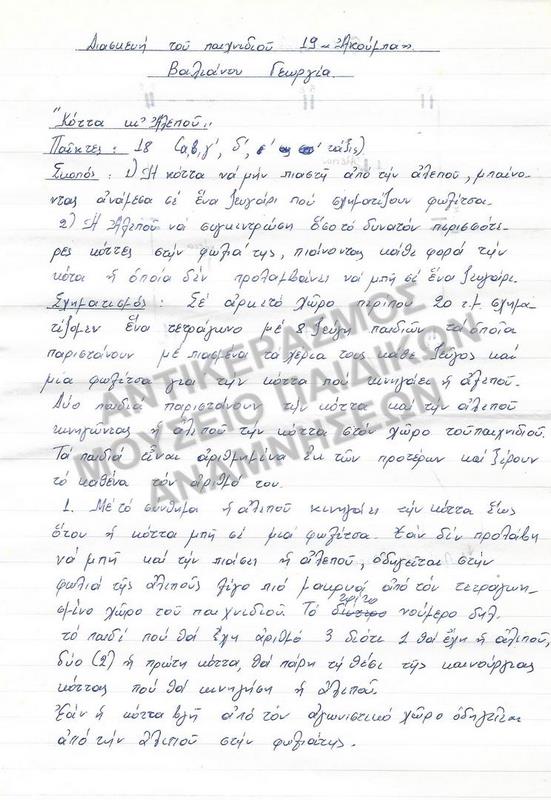 Διασκευή τοῦ παιχνιδιοῦ 19 «Ἀκούμπα».
Βαλιάνου Γεωργία.
"Κόττα κι' Ἀλεποῦ"
Παῖκτες : 18 (α, β, γ', δ', τάξις)
Σκοπός : 1) Ἡ κόττα νά μήν πιαστῆ ἀπό τήν ἀλεποῦ, μπαίνο-
ντας ἀνάμεσα σέ ἕνα ζευγάρι πού σχηματίζουν φωλίτσα.
2) Ἡ Ἀλεποῦ νά συγκεντρώση ὅσο τό δυνατόν περισσότε-
ρες κόττες στήν φωλιά της, πιαίνοντας κάθε φορά τήν
κότα ἡ ὁποία δέν προλαμβαίνει νά μπῆ σέ ἕνα ζευγάρι.
Σχηματισμός : Σέ ἀρκετό χῶρο περίπου 20 τ.μ. σχημα-
τίζομεν ἕνα τετράγωνο μέ 8 ζεύγη παιδιῶν τά ὁποῖα
παριστάνουν μέ πιασμένα τά χέρια τους κάθε ζεῦγος καί
μία φωλίτσα γιά τήν κόττα πού κυνηγάει ἡ ἀλεποῦ.
Δύο παιδιά παριστάνουν τήν κόττα καί τήν ἀλεποῦ
κυνηγώντας ἡ ἀλεποῦ τήν κόττα στόν χῶρο τοῦ παιχνιδιοῦ.
Τά παιδιά εἶναι ἀριθμημένα ἐκ τῶν προτέρων καί ξέρουν
τό καθένα τόν ἀριθμό του.
1. Μέ τό σύνθημα ἡ ἀλεποῦ κυνηγάει τήν κόττα ἕως
ὅτου ἡ κόττα μπῆ σέ μιά φωλίτσα. Ἐάν δέν προλάβη
νά μπῆ καί τήν πιάσει ἡ ἀλεποῦ, ὁδηγεῖται στήν
φωλιά τῆς ἀλεποῦς λίγο πιό μακρυά ἀπό τόν τετραγωνι-
σμένο χῶρο τοῦ παιχνιδιοῦ. Τό δεύτερο τρίτο νούμερο δηλ.
τό παιδί πού θά ἔχη ἀριθμό 3 διότι 1 θά ἔχη ἡ ἀλεποῦ,
δύο (2) ἡ πρώτη κόττα, θά πάρη τή θέσι τῆς καινούργιας
κόττας πού θά κυνηγήση ἡ ἀλεποῦ.
Ἐάν ἡ κόττα βγῆ ἀπό τόν ἀγωνιστικό χῶρο ὁδηγεῖται
ἀπό τήν ἀλεποῦ στήν φωλιά της.
ΑΝΤΙΚΕΡΑΣΜΟΣ
ΜΟΥΣΕΙΟ ΠΑΙΔΙΚΩΝ
ΑΝΑΜΝΗΣΕΩΝ